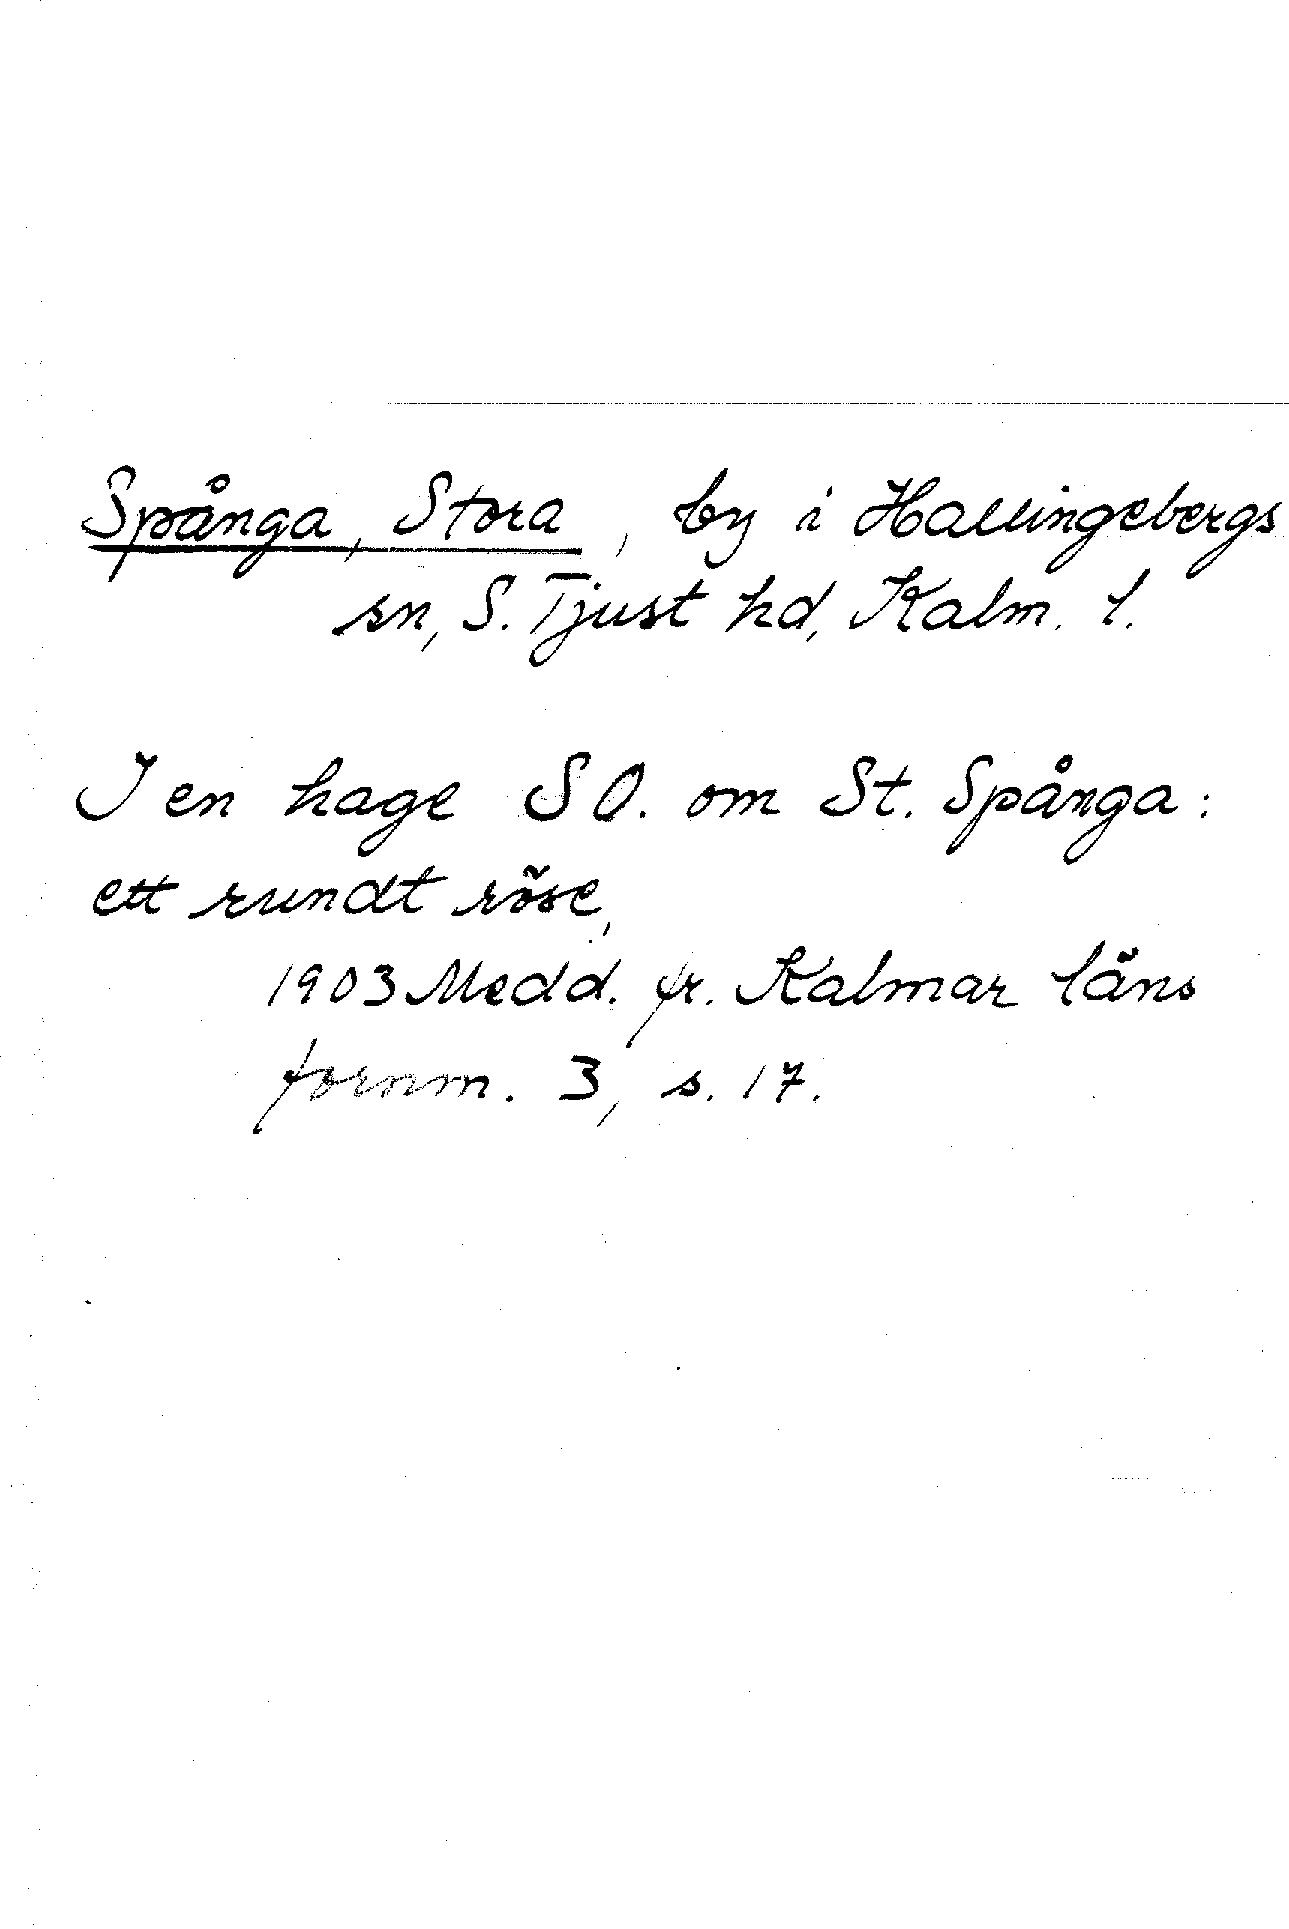 Spånga, Stora, by i Hallingebergs
sn, S. Tjust hd, Kalm. l.
I en hage SO. om St. Spånga:
ett rundt röse,
1903 Medd. fr. Kalmar läns
fornm. 3, s. 17.